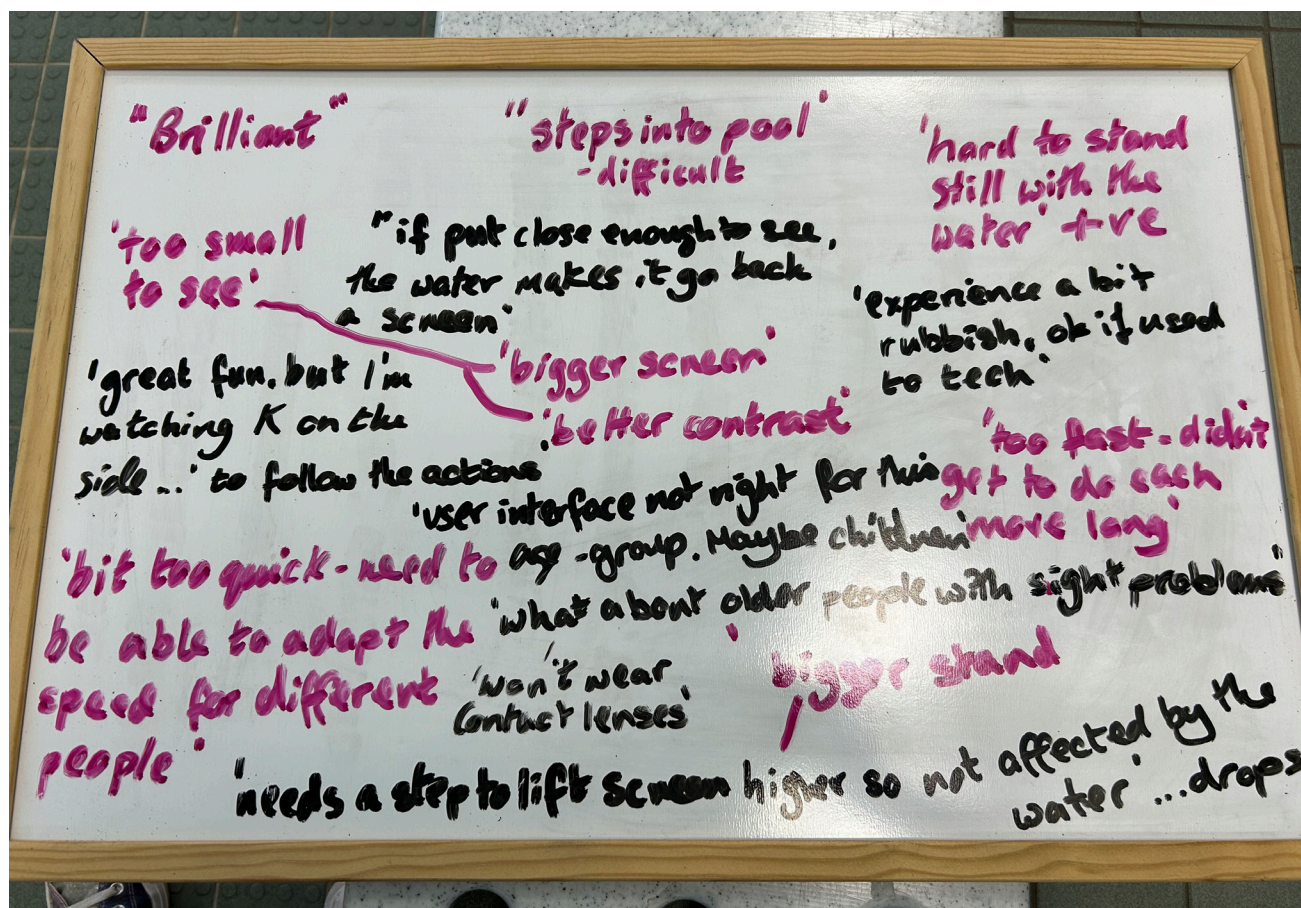 "Brilliant"
"steps into pool'
-difficult
'hard to stand
still with the
water' +ve
'too small
to see'
"if put close enough to see,
the water makes it go back
a screen'
'experience a bit
rubbish, ok if used
to tech'
'bigger screen'
'better contrast'
'great fun, but I'm
watching K on the
side...' to follow the actions
'too fast - didn't
get to do each
more lang'
'user interface not right for this
age-group. Maybe children'
'bit too quick - need to
be able to adapt the
speed for different
people'
'what about older people with sight problems'
'won't wear
contact lenses'
'bigger stand
'needs a step to lift screen higher so not affected by the
water' ...drops